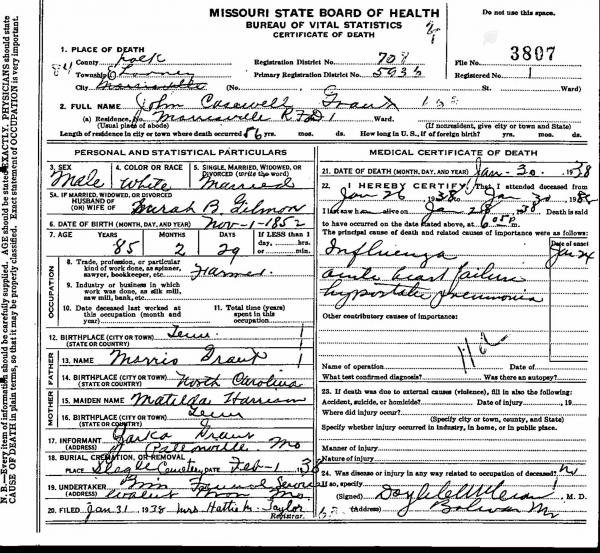 MISSOURI STATE BOARD OF HEALTH
BUREAU OF VITAL STATISTICS
CERTIFICATE OF DEATH
Do not use this space.
1. PLACE OF DEATH
County Polk Registration District No. 708 File No. 3807
Township Primary Registration District No. 5933 Registered No. 1
City Morrisville (No. St. Ward)
2. FULL NAME John Casewell Grant
(a) Residence, No. Morrisville R.F.D 1 Ward.
(Usual place of abode) (If nonresident, give city or town and State)
Length of residence in city or town where death occurred 56 yrs. mos. ds. How long in U. S., if of foreign birth? yrs. mos. ds.
PERSONAL AND STATISTICAL PARTICULARS
3. SEX Male
4. COLOR OR RACE White
5. SINGLE, MARRIED, WIDOWED, OR DIVORCED (write the word) Married
5A. IF MARRIED, WIDOWED, OR DIVORCED
HUSBAND OF
(OR) WIFE OF Sarah B. Gilmon
6. DATE OF BIRTH (MONTH, DAY, AND YEAR) Nov-1-1852
7. AGE YEARS MONTHS DAYS If LESS than 1
85 2 29 day, hrs. or min.
OCCUPATION
8. Trade, profession, or particular kind of work done, as spinner, sawyer, bookkeeper, etc. Farmer
9. Industry or business in which work was done, as silk mill, saw mill, bank, etc.
10. Date deceased last worked at this occupation (month and year)
11. Total time (years) spent in this occupation
12. BIRTHPLACE (CITY OR TOWN) Tenn
(STATE OR COUNTRY)
FATHER
13. NAME Morris Grant
14. BIRTHPLACE (CITY OR TOWN) North Carolina
(STATE OR COUNTRY)
MOTHER
15. MAIDEN NAME Matilda Harrison
16. BIRTHPLACE (CITY OR TOWN) Tenn
(STATE OR COUNTRY)
17. INFORMANT Grant
(ADDRESS) Mo
18. BURIAL, CREMATION, OR REMOVAL
PLACE Slagle Cemetery DATE Feb-1 38
19. UNDERTAKER Grim Funeral Service
(ADDRESS) Walnut Grove Mo.
20. FILED Jan 31 1938 Mrs Hattie M. Taylor
Registrar.
MEDICAL CERTIFICATE OF DEATH
21. DATE OF DEATH (MONTH, DAY, AND YEAR) Jan-30- 1938
22. I HEREBY CERTIFY, That I attended deceased from
Jan 26 1938, to Jan 30 1938
I last saw h alive on Jan 28 1938 Death is said
to have occurred on the date stated above, at m.
The principal cause of death and related causes of importance were as follows:
Date of onset
Influenza Jan 24
acute heart failure
hypostatic pneumonia
Other contributory causes of importance:
Name of operation Date of
What test confirmed diagnosis? Was there an autopsy?
23. If death was due to external causes (violence), fill in also the following:
Accident, suicide, or homicide? Date of injury , 19
Where did injury occur?
(Specify city or town, county, and State)
Specify whether injury occurred in industry, in home, or in public place.
Manner of injury
Nature of injury
24. Was disease or injury in any way related to occupation of deceased? No
If so, specify
(Signed) M. D.
(Address) Bolivar Mo
N. B.—Every item of information should be carefully supplied. AGE should be stated EXACTLY. PHYSICIANS should state
CAUSE OF DEATH in plain terms, so that it may be properly classified. Exact statement of OCCUPATION is very important.